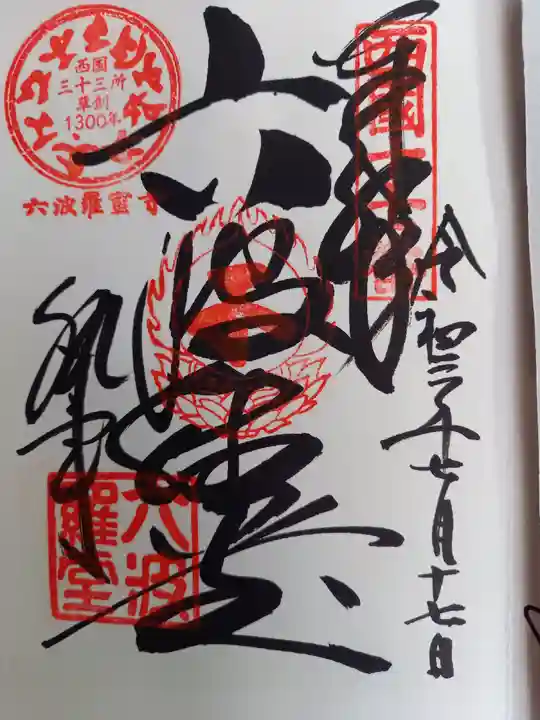 奉拝
西國十七番
令和三年七月十七日
六波羅堂
六波羅蜜寺
西国
三十三所
草創
1300年
六波羅蜜寺
六波羅堂